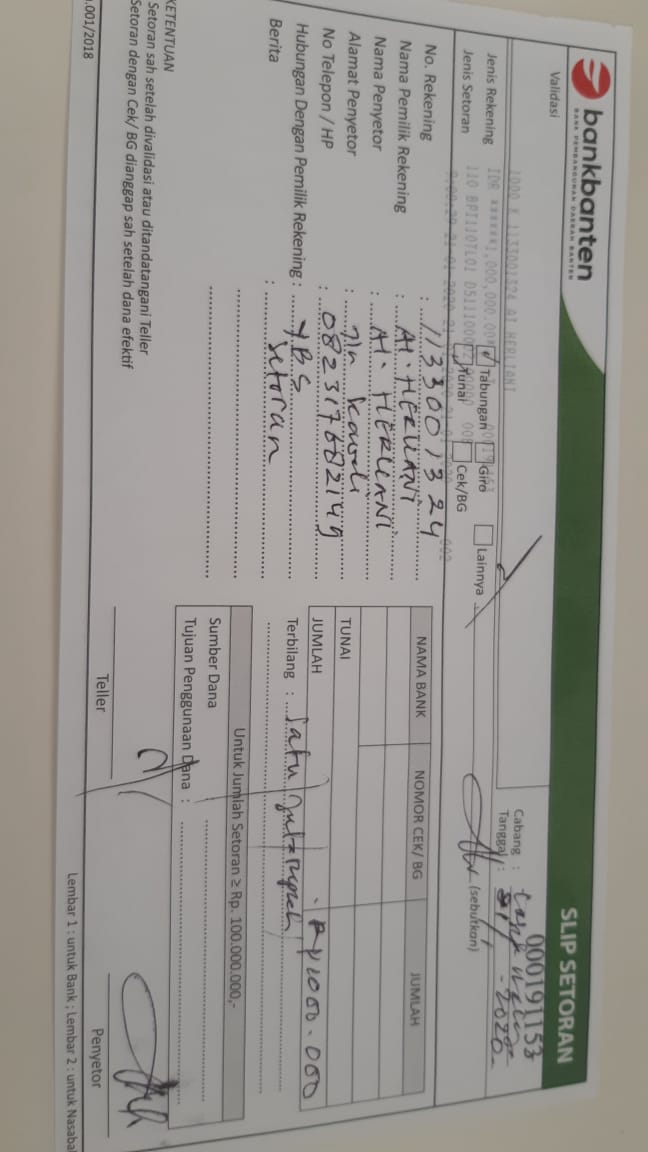 bankbanten
BANK PEMBANGUNAN DAERAH BANTEN
SLIP SETORAN
000191153
Validasi
1000 K 1133001324 AT HERLIANI
IDR ******1,000,000.00
Cabang :
Tanggal : - 2020
Jenis Rekening Tabungan Giro Lainnya (sebutkan)
Jenis Setoran Tunai Cek/BG
No. Rekening : 1133001324
Nama Pemilik Rekening : At. HERLIANI
Nama Penyetor : At. HERLIANI
Alamat Penyetor : Jln
No Telepon / HP : 082317682149
Hubungan Dengan Pemilik Rekening : YBS
Berita : Setoran
NAMA BANK NOMOR CEK/ BG JUMLAH
TUNAI
JUMLAH Rp 1.000.000
Terbilang : Satu juta rupiah
Untuk Jumlah Setoran ≥ Rp. 100.000.000,-
Sumber Dana :
Tujuan Penggunaan Dana :
KETENTUAN
Setoran sah setelah divalidasi atau ditandatangani Teller
Setoran dengan Cek/ BG dianggap sah setelah dana efektif
Teller Penyetor
.001/2018
Lembar 1 : untuk Bank ; Lembar 2 : untuk Nasaba